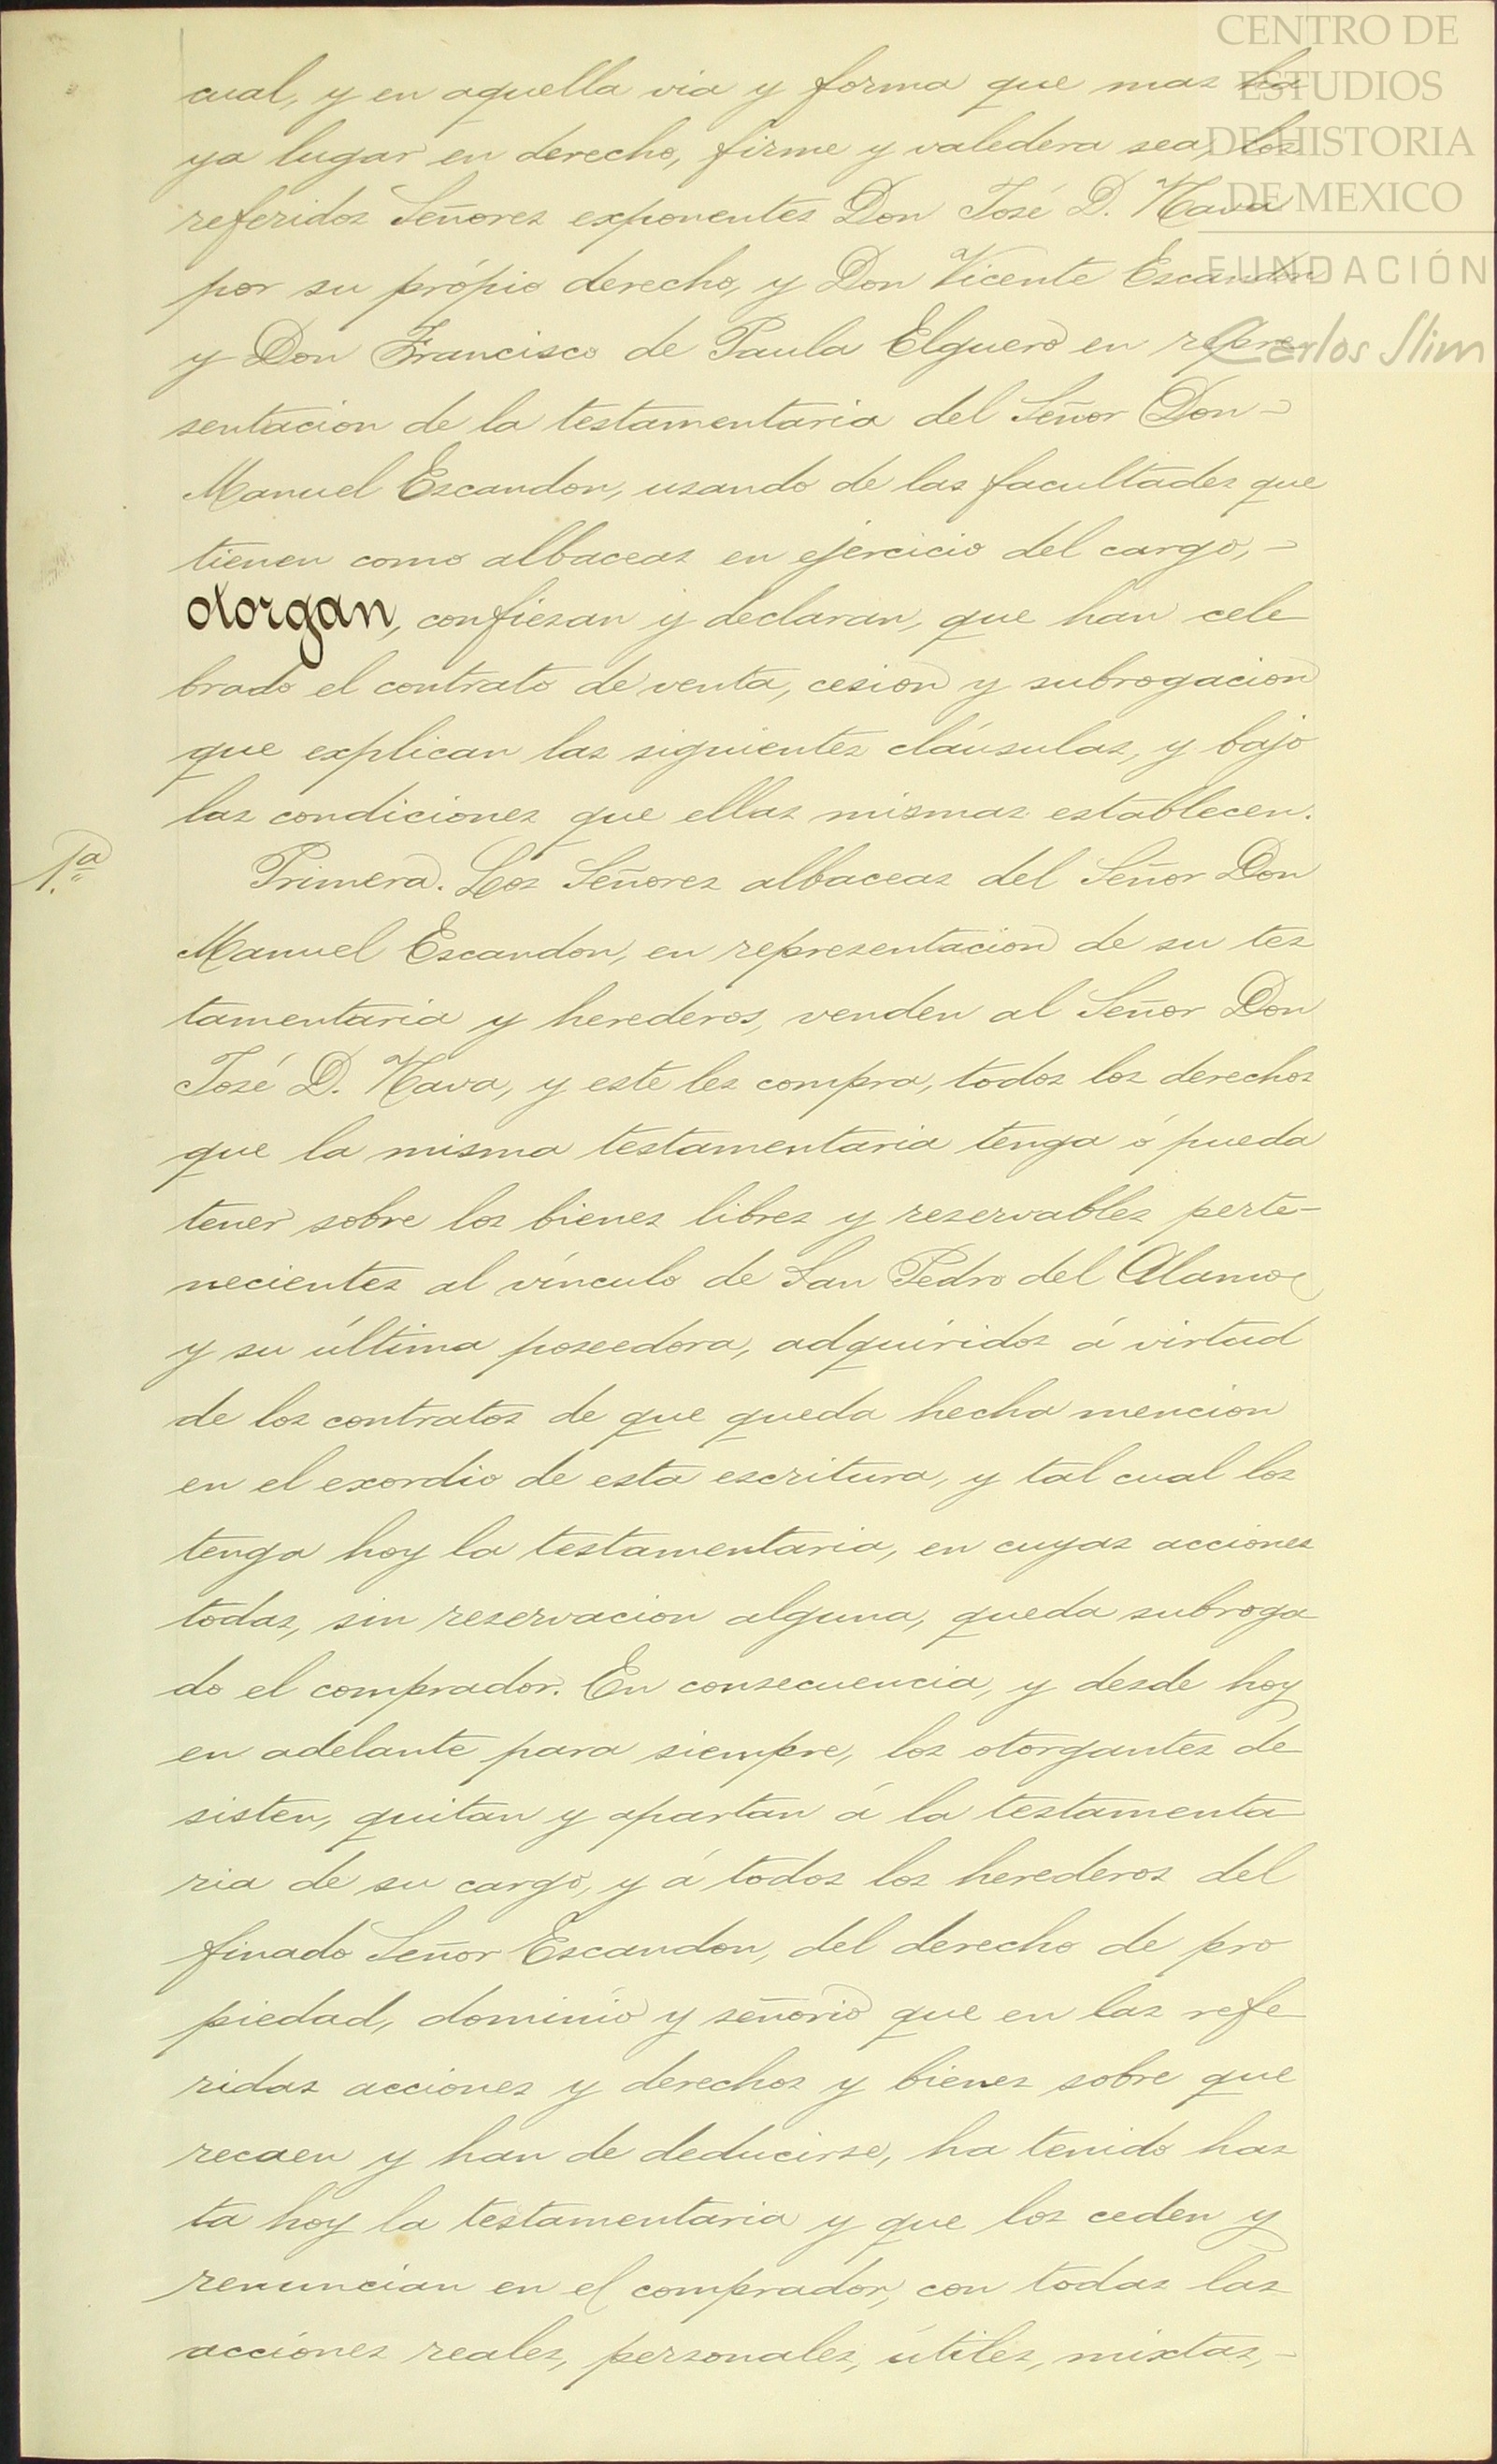 CENTRO DE
ESTUDIOS
DE HISTORIA
DE MEXICO
FUNDACIÓN
Carlos Slim
cual, y en aquella via y forma que mas ha
ya lugar en derecho, firme y valedera sea, los
referidos Señores exponentes Don José D. Nava
por su própio derecho, y Don Vicente Escandon
y Don Francisco de Paula Elguero en repre
sentacion de la testamentaria del Señor Don-
Manuel Escandon, usando de las facultades que
tienen como albaceas en ejercicio del cargo,-
otorgan, confiesan y declaran, que han cele
brado el contrato de venta, cesion y subrogacion
que explican las siguientes cláusulas, y bajo
las condiciones que ellas mismas establecen.
1.ª
Primera. Los Señores albaceas del Señor Don
Manuel Escandon, en representacion de su tes
tamentaria y herederos, venden al Señor Don
José D. Nava, y este les compra, todos los derechos
que la misma testamentaria tenga ó pueda
tener sobre los bienes libres y reservables perte-
necientes al vínculo de San Pedro del Alamo
y su última poseedora, adquiridos á virtud
de los contratos de que queda hecha mencion
en el exordio de esta escritura, y tal cual los
tenga hoy la testamentaria, en cuyas acciones
todas, sin reservacion alguna, queda subroga
do el comprador. En consecuencia, y desde hoy
en adelante para siempre, los otorgantes de
sisten, quitan y apartan á la testamenta
ria de su cargo, y á todos los herederos del
finado Señor Escandon, del derecho de pro
piedad, dominio y señorio que en las refe
ridas acciones y derechos y bienes sobre que
recaen y han de deducirse, ha tenido has
ta hoy la testamentaria y que los ceden y
renuncian en el comprador, con todas las
acciones reales, personales, útiles, mixtas,-